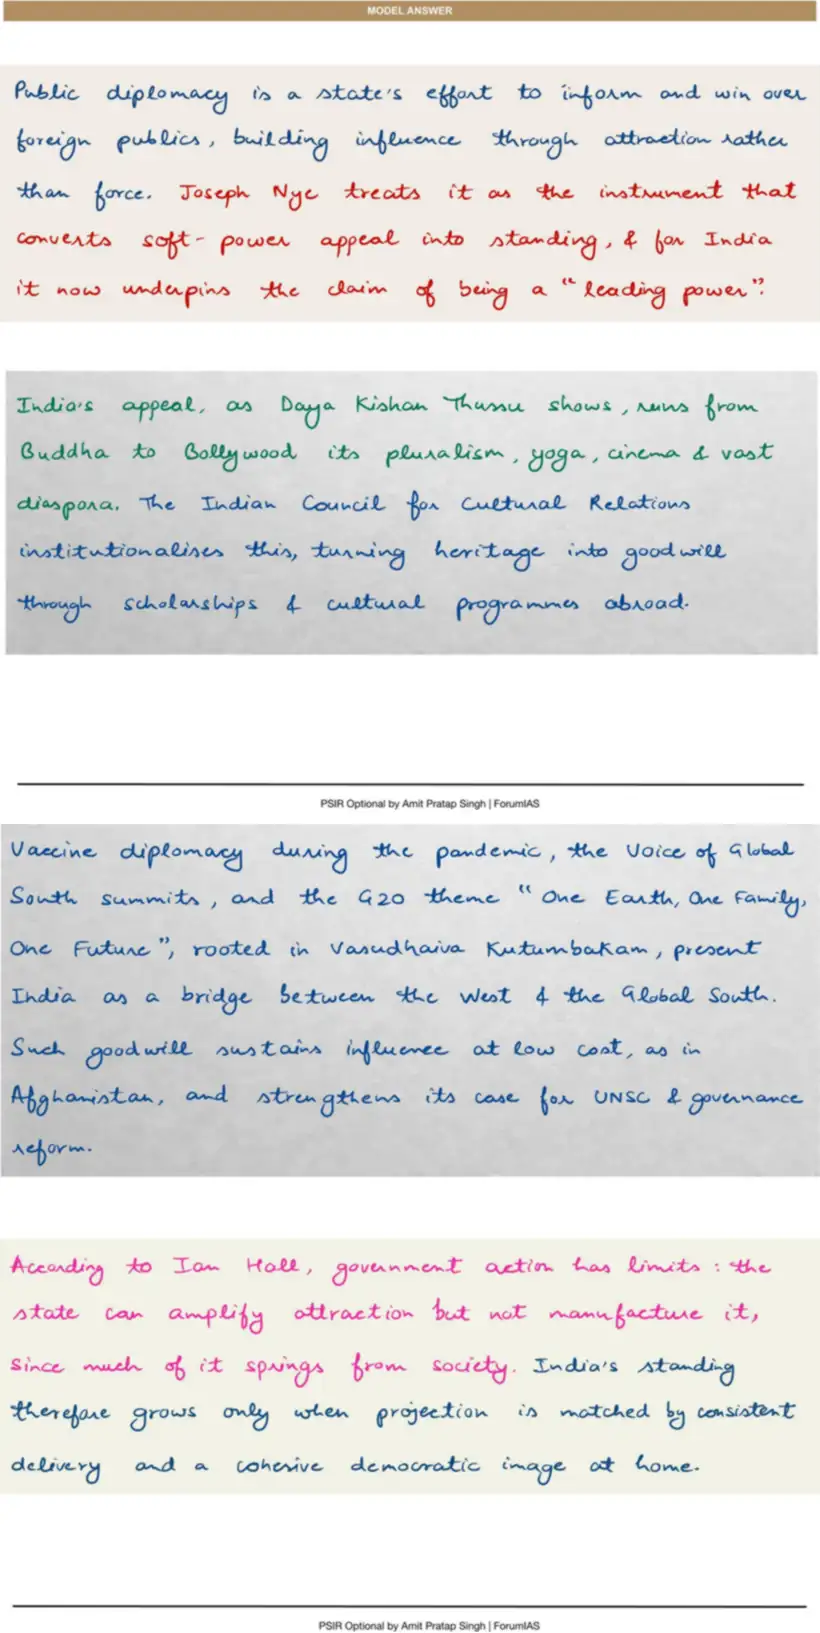 MODEL ANSWER
Public diplomacy is a state's effort to inform and win over
foreign publics, building influence through attraction rather
than force. Joseph Nye treats it as the instrument that
converts soft-power appeal into standing, & for India
it now underpins the claim of being a "leading power".
India's appeal, as Daya Kishan Thussu shows, runs from
Buddha to Bollywood its pluralism, yoga, cinema & vast
diaspora. The Indian Council for Cultural Relations
institutionalises this, turning heritage into goodwill
through scholarships & cultural programmes abroad.
PSIR Optional by Amit Pratap Singh | ForumIAS
Vaccine diplomacy during the pandemic, the Voice of Global
South summits, and the G20 theme "One Earth, One Family,
One Future", rooted in Vasudhaiva Kutumbakam, present
India as a bridge between the West & the Global South.
Such goodwill sustains influence at low cost, as in
Afghanistan, and strengthens its case for UNSC & governance
reform.
According to Ian Hall, government action has limits: the
state can amplify attraction but not manufacture it,
since much of it springs from society. India's standing
therefore grows only when projection is matched by consistent
delivery and a cohesive democratic image at home.
PSIR Optional by Amit Pratap Singh | ForumIAS